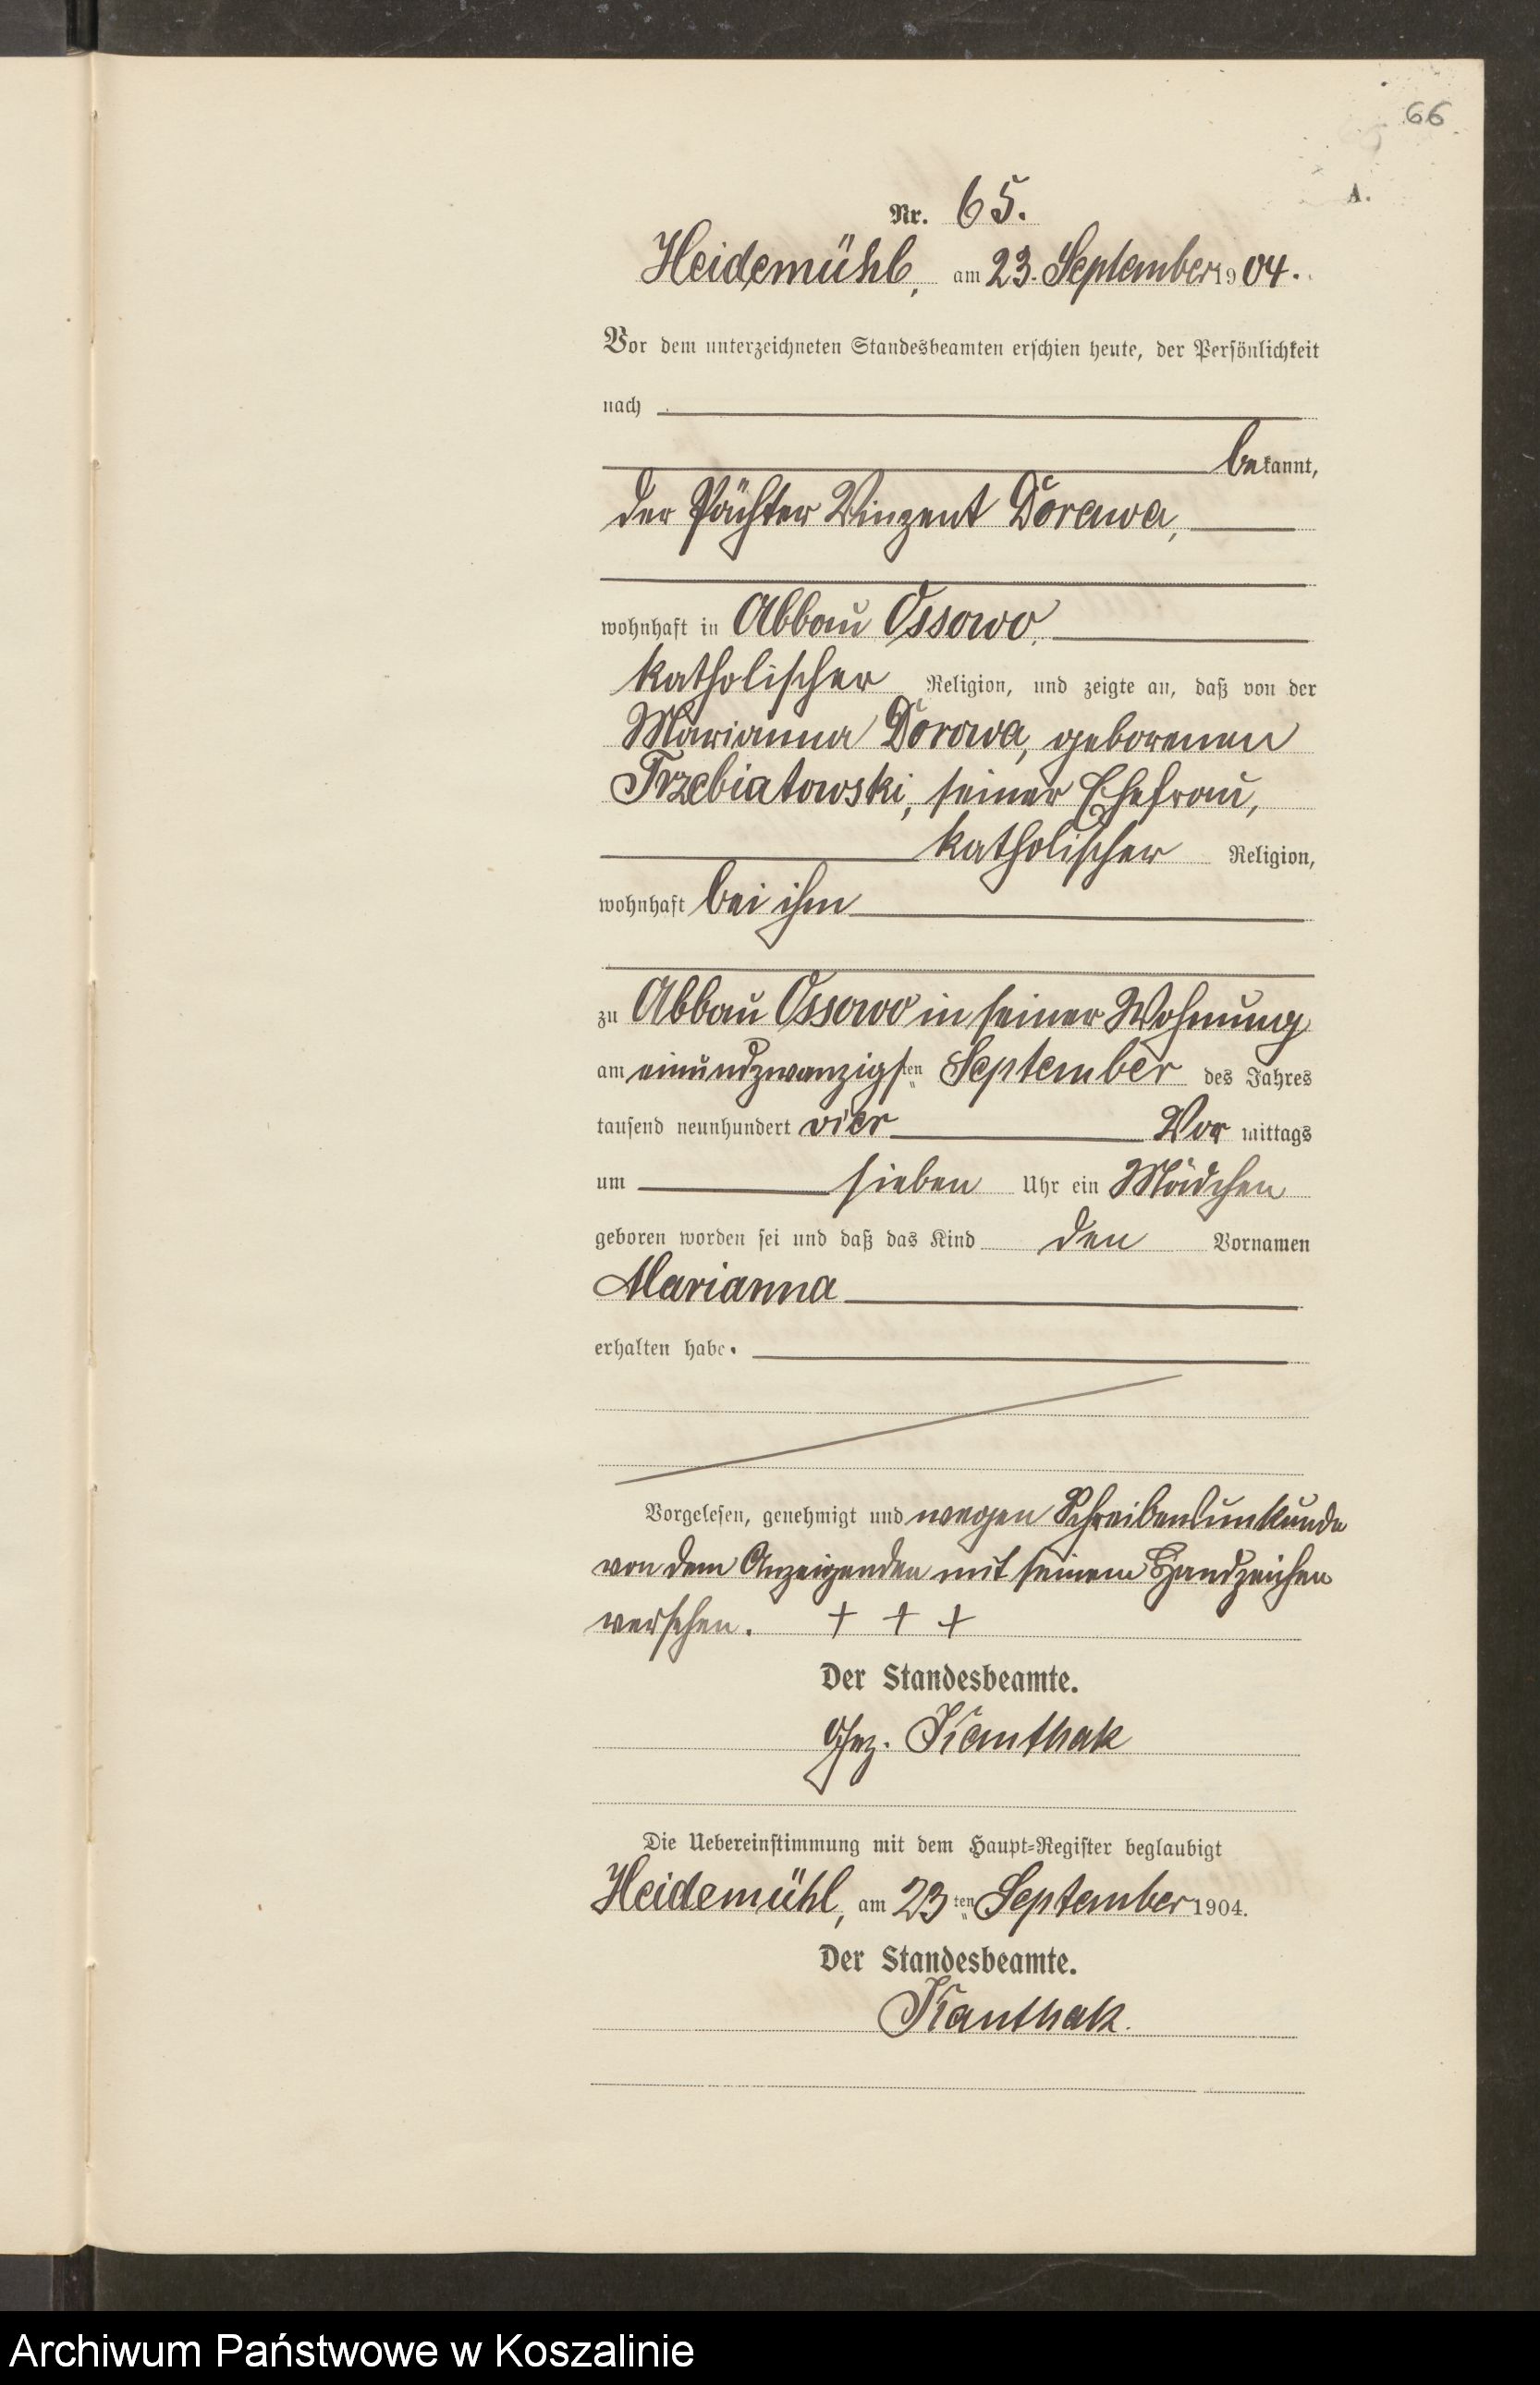 66
A.
Nr. 65.
Heidemühl, am 23. September 1904.
Vor dem unterzeichneten Standesbeamten erschien heute, der Persönlichkeit
nach
bekannt,
der Pächter Vinzent Dorawa,
wohnhaft in Abbau Ossowo,
katholischer Religion, und zeigte an, daß von der
Marianna Dorawa, geborenen
Trzebiatowski, seiner Ehefrau,
katholischer Religion,
wohnhaft bei ihm
zu Abbau Ossowo in seiner Wohnung
am einundzwanzigsten September des Jahres
tausend neunhundert vier Vor mittags
um sieben Uhr ein Mädchen
geboren worden sei und daß das Kind den Vornamen
Marianna
erhalten habe.
Vorgelesen, genehmigt und wegen Schreibensunkunde
von dem Anzeigenden mit seinem Handzeichen
versehen. + + +
Der Standesbeamte.
Gez. Kanthak
Die Uebereinstimmung mit dem Haupt-Register beglaubigt
Heidemühl, am 23ten September 1904.
Der Standesbeamte.
Kanthak.
Archiwum Państwowe w Koszalinie